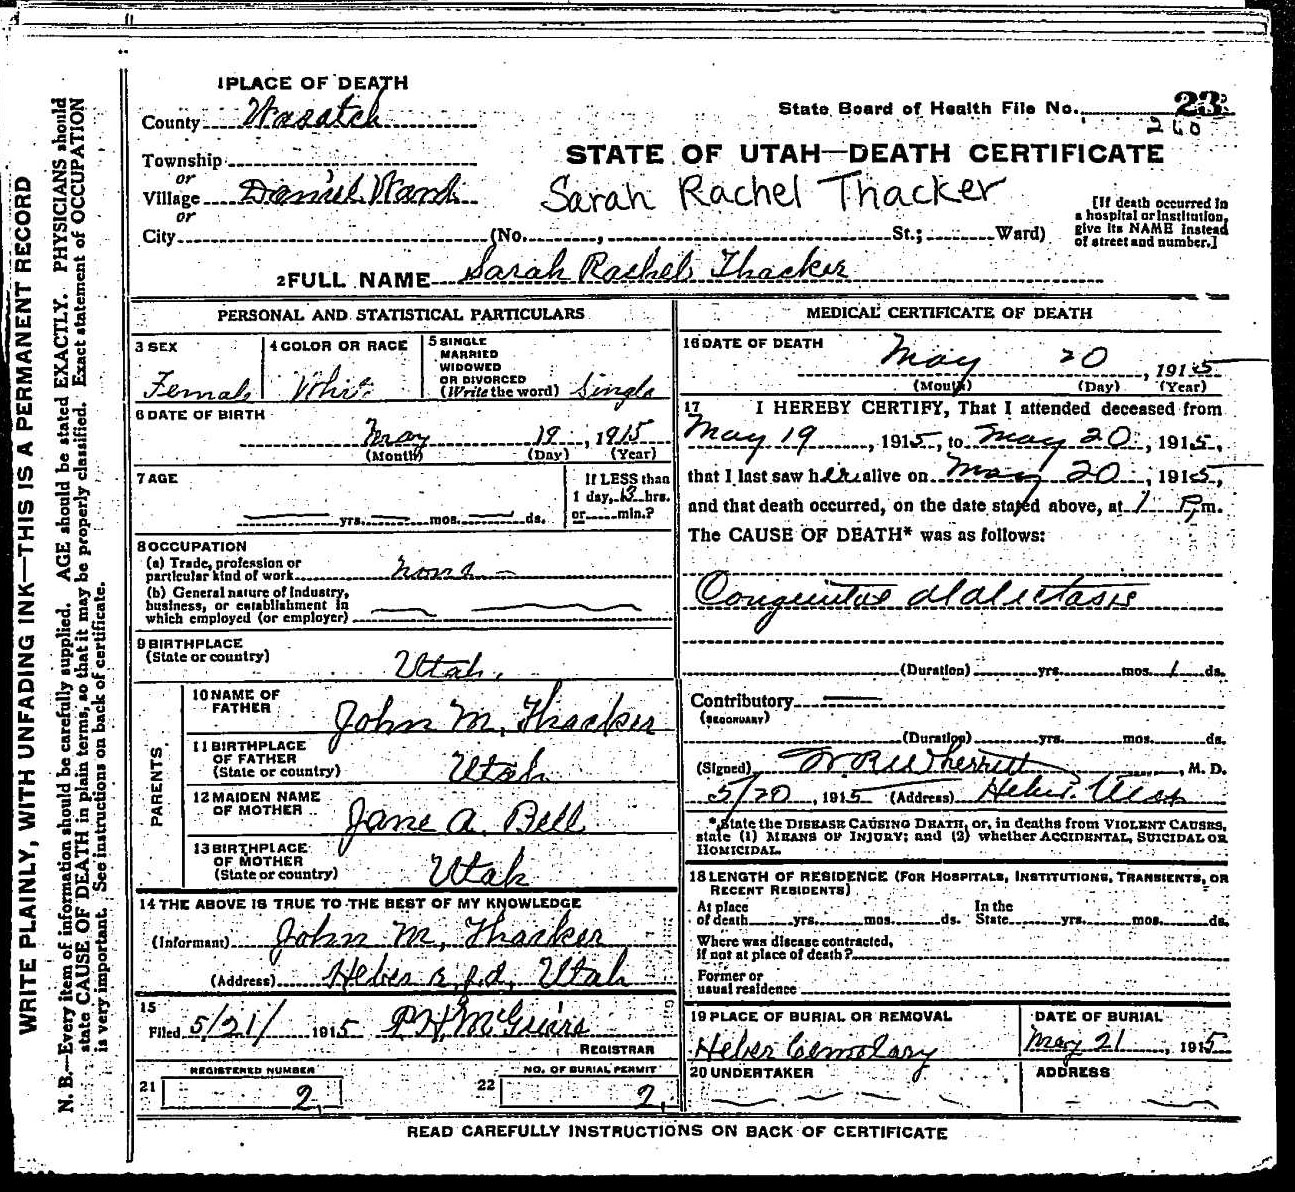 1 PLACE OF DEATH
County Wasatch
State Board of Health File No. 23
260
Township
or
Village Daniel Ward
or
City (No. , St.; Ward)
STATE OF UTAH—DEATH CERTIFICATE
Sarah Rachel Thacker
[If death occurred in
a hospital or institution,
give its NAME instead
of street and number.]
2 FULL NAME Sarah Rachel Thacker
PERSONAL AND STATISTICAL PARTICULARS
3 SEX
Female
4 COLOR OR RACE
White
5 SINGLE
MARRIED
WIDOWED
OR DIVORCED
(Write the word) Single
6 DATE OF BIRTH
May 19, 1915
(Month) (Day) (Year)
7 AGE
yrs. mos. ds.
If LESS than
1 day, 13 hrs.
or min.?
8 OCCUPATION
(a) Trade, profession or
particular kind of work none
(b) General nature of industry,
business, or establishment in
which employed (or employer)
9 BIRTHPLACE
(State or country)
Utah.
PARENTS
10 NAME OF
FATHER John M. Thacker
11 BIRTHPLACE
OF FATHER
(State or country) Utah
12 MAIDEN NAME
OF MOTHER Jane A. Bell
13 BIRTHPLACE
OF MOTHER
(State or country) Utah
14 THE ABOVE IS TRUE TO THE BEST OF MY KNOWLEDGE
(Informant) John M. Thacker
(Address) Heber r.f.d, Utah
15
Filed 5/21/ 1915 P.H. McGuire
REGISTRAR
21 REGISTERED NUMBER
2
22 NO. OF BURIAL PERMIT
2
MEDICAL CERTIFICATE OF DEATH
16 DATE OF DEATH
May 20, 1915
(Month) (Day) (Year)
17 I HEREBY CERTIFY, That I attended deceased from
May 19, 1915, to May 20, 1915,
that I last saw her alive on May 20, 1915,
and that death occurred, on the date stated above, at 1 P.m.
The CAUSE OF DEATH* was as follows:
Congenital atalectasis
(Duration) yrs. mos. 1 ds.
Contributory
(SECONDARY)
(Duration) yrs. mos. ds.
(Signed) W.R. Wherritt, M. D.
5/20, 1915 (Address) Heber, Utah
*State the DISEASE CAUSING DEATH, or, in deaths from VIOLENT CAUSES,
state (1) MEANS OF INJURY; and (2) whether ACCIDENTAL, SUICIDAL OR
HOMICIDAL.
18 LENGTH OF RESIDENCE (FOR HOSPITALS, INSTITUTIONS, TRANSIENTS, OR
RECENT RESIDENTS)
At place
of death yrs. mos. ds.
In the
State yrs. mos. ds.
Where was disease contracted,
if not at place of death?
Former or
usual residence
19 PLACE OF BURIAL OR REMOVAL
Heber Cemetary
DATE OF BURIAL
May 21, 1915
20 UNDERTAKER
ADDRESS
READ CAREFULLY INSTRUCTIONS ON BACK OF CERTIFICATE
WRITE PLAINLY, WITH UNFADING INK—THIS IS A PERMANENT RECORD
N. B.—Every item of information should be carefully supplied. AGE should be stated EXACTLY. PHYSICIANS should
state CAUSE OF DEATH in plain terms, so that it may be properly classified. Exact statement of OCCUPATION
is very important. See instructions on back of certificate.